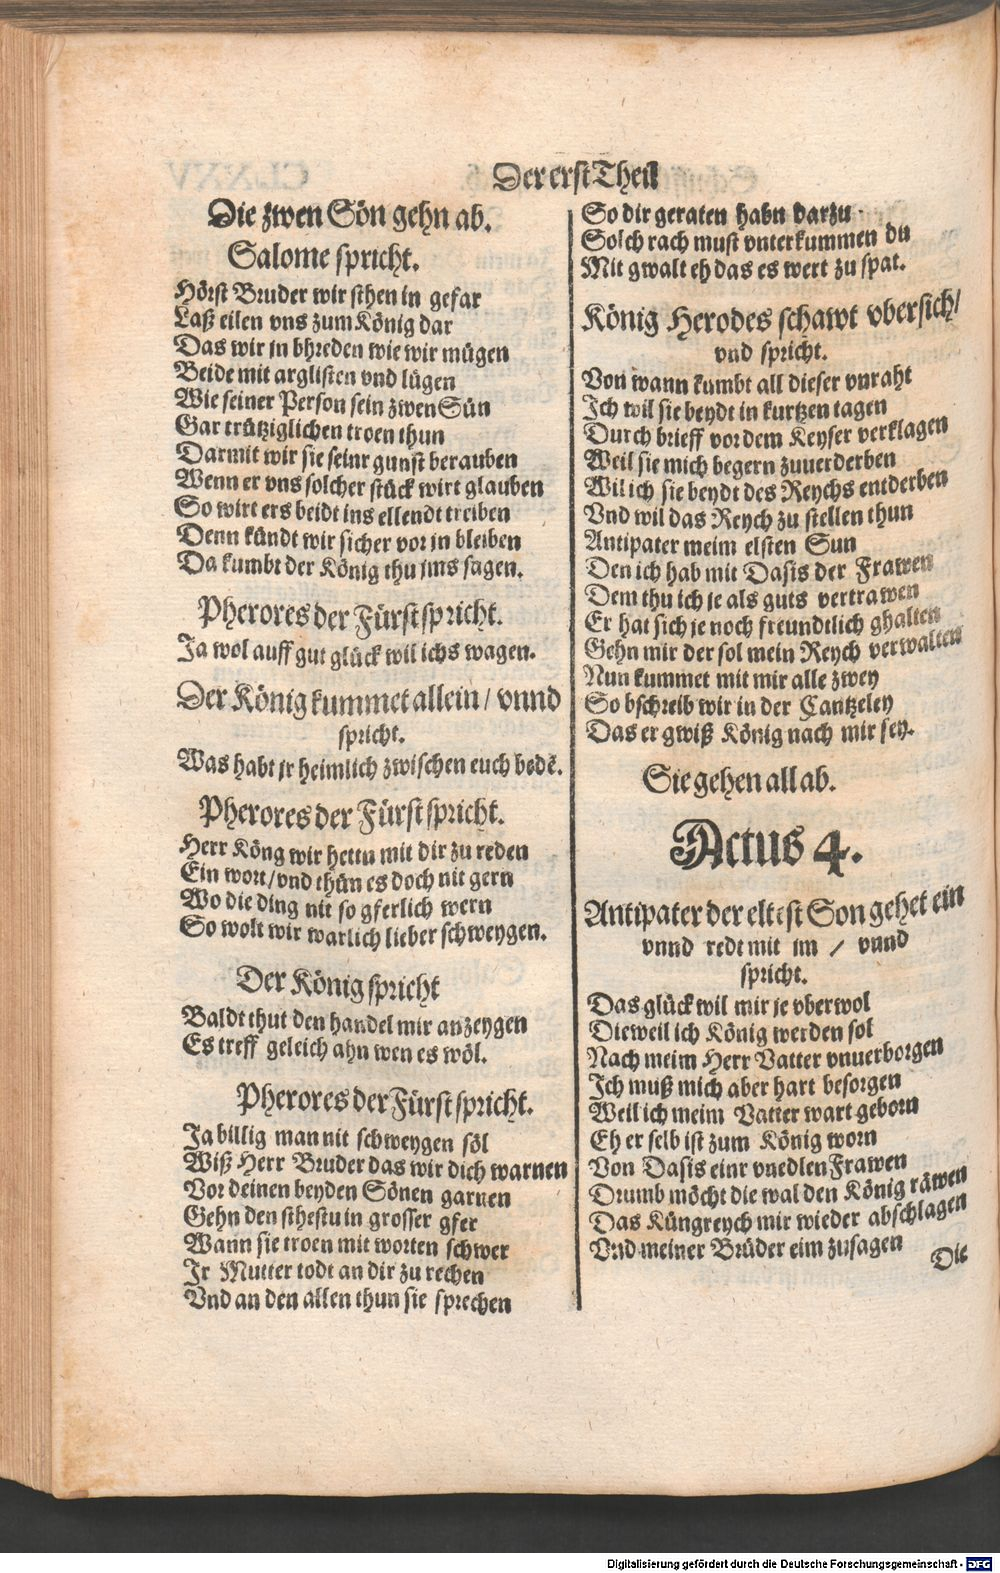 Der erst Theil
Die zwen Sön gehn ab.
Salome spricht.
Hörst Bruder wir sthen in gefar
Laß eilen vns zum König dar
Das wir in bhreden wie wir mügen
Beide mit arglisten vnd lügen
Wie seiner Person sein zwen Sün
Gar trütziglichen troen thun
Darmit wir sie seinr gunst berauben
Wenn er vns solcher stück wirt glauben
So wirt ers beidt ins ellendt treiben
Denn kündt wir sicher vor in bleiben
Da kumbt der König thu jms sagen.
Pherores der Fürst spricht.
Ja wol auff gut glück wil ichs wagen.
Der König kummet allein / vnnd
spricht.
Was habt jr heimlich zwischen euch bedẽ.
Pherores der Fürst spricht.
Herr Köng wir hettn mit dir zu reden
Ein wort / vnd thün es doch nit gern
Wo die ding nit so gferlich wern
So wolt wir warlich lieber schweygen.
Der König spricht
Baldt thut den handel mir anzeygen
Es treff geleich ahn wen es wöl.
Pherores der Fürst spricht.
Ja billig man nit schweygen söl
Wiß Herr Bruder das wir dich warnen
Vor deinen beyden Sönen garnen
Gehn den sthestu in grosser gfer
Wann sie troen mit worten schwer
Jr Mutter todt an dir zu rechen
Vnd an den allen thun sie sprechen
So dir geraten habn darzu
Solch rach must vnterkummen du
Mit gwalt eh das es wert zu spat.
König Herodes schawt vbersich /
vnd spricht.
Von wann kumbt all dieser vnraht
Ich wil sie beydt in kurtzen tagen
Durch brieff vor dem Keyser verklagen
Weil sie mich begern zuuerderben
Wil ich sie beydt des Reychs entderben
Vnd wil das Reych zu stellen thun
Antipater meim elsten Sun
Den ich hab mit Dasis der Frawen
Dem thu ich je als guts vertrawen
Er hat sich je noch freundtlich ghalten
Gehn mir der sol mein Reych verwalten
Nun kummet mit mir alle zwey
So bschreib wir in der Cantzeley
Das er gwiß König nach mir sey.
Sie gehen all ab.
Actus 4.
Antipater der eltest Son gehet ein
vnnd redt mit im / vnnd
spricht.
Das glück wil mir je vberwol
Dieweil ich König werden sol
Nach meim Herr Vatter vnuerborgen
Ich muß mich aber hart besorgen
Weil ich meim Vatter wart geborn
Eh er selb ist zum König worn
Von Dasis einr vnedlen Frawen
Drumb möcht die wal den König räwen
Das Küngreych mir wieder abschlagen
Vnd meiner Brüder eim zusagen
Die
Digitalisierung gefördert durch die Deutsche Forschungsgemeinschaft - DFG